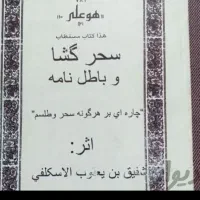 هو علی
هذا کتاب مستطاب
سحر گشا
و باطل نامه
"چاره اي بر هرگونه سحر وطلسم"
اثر:
شفیق بن یعقوب الاسکلفي
دیوار